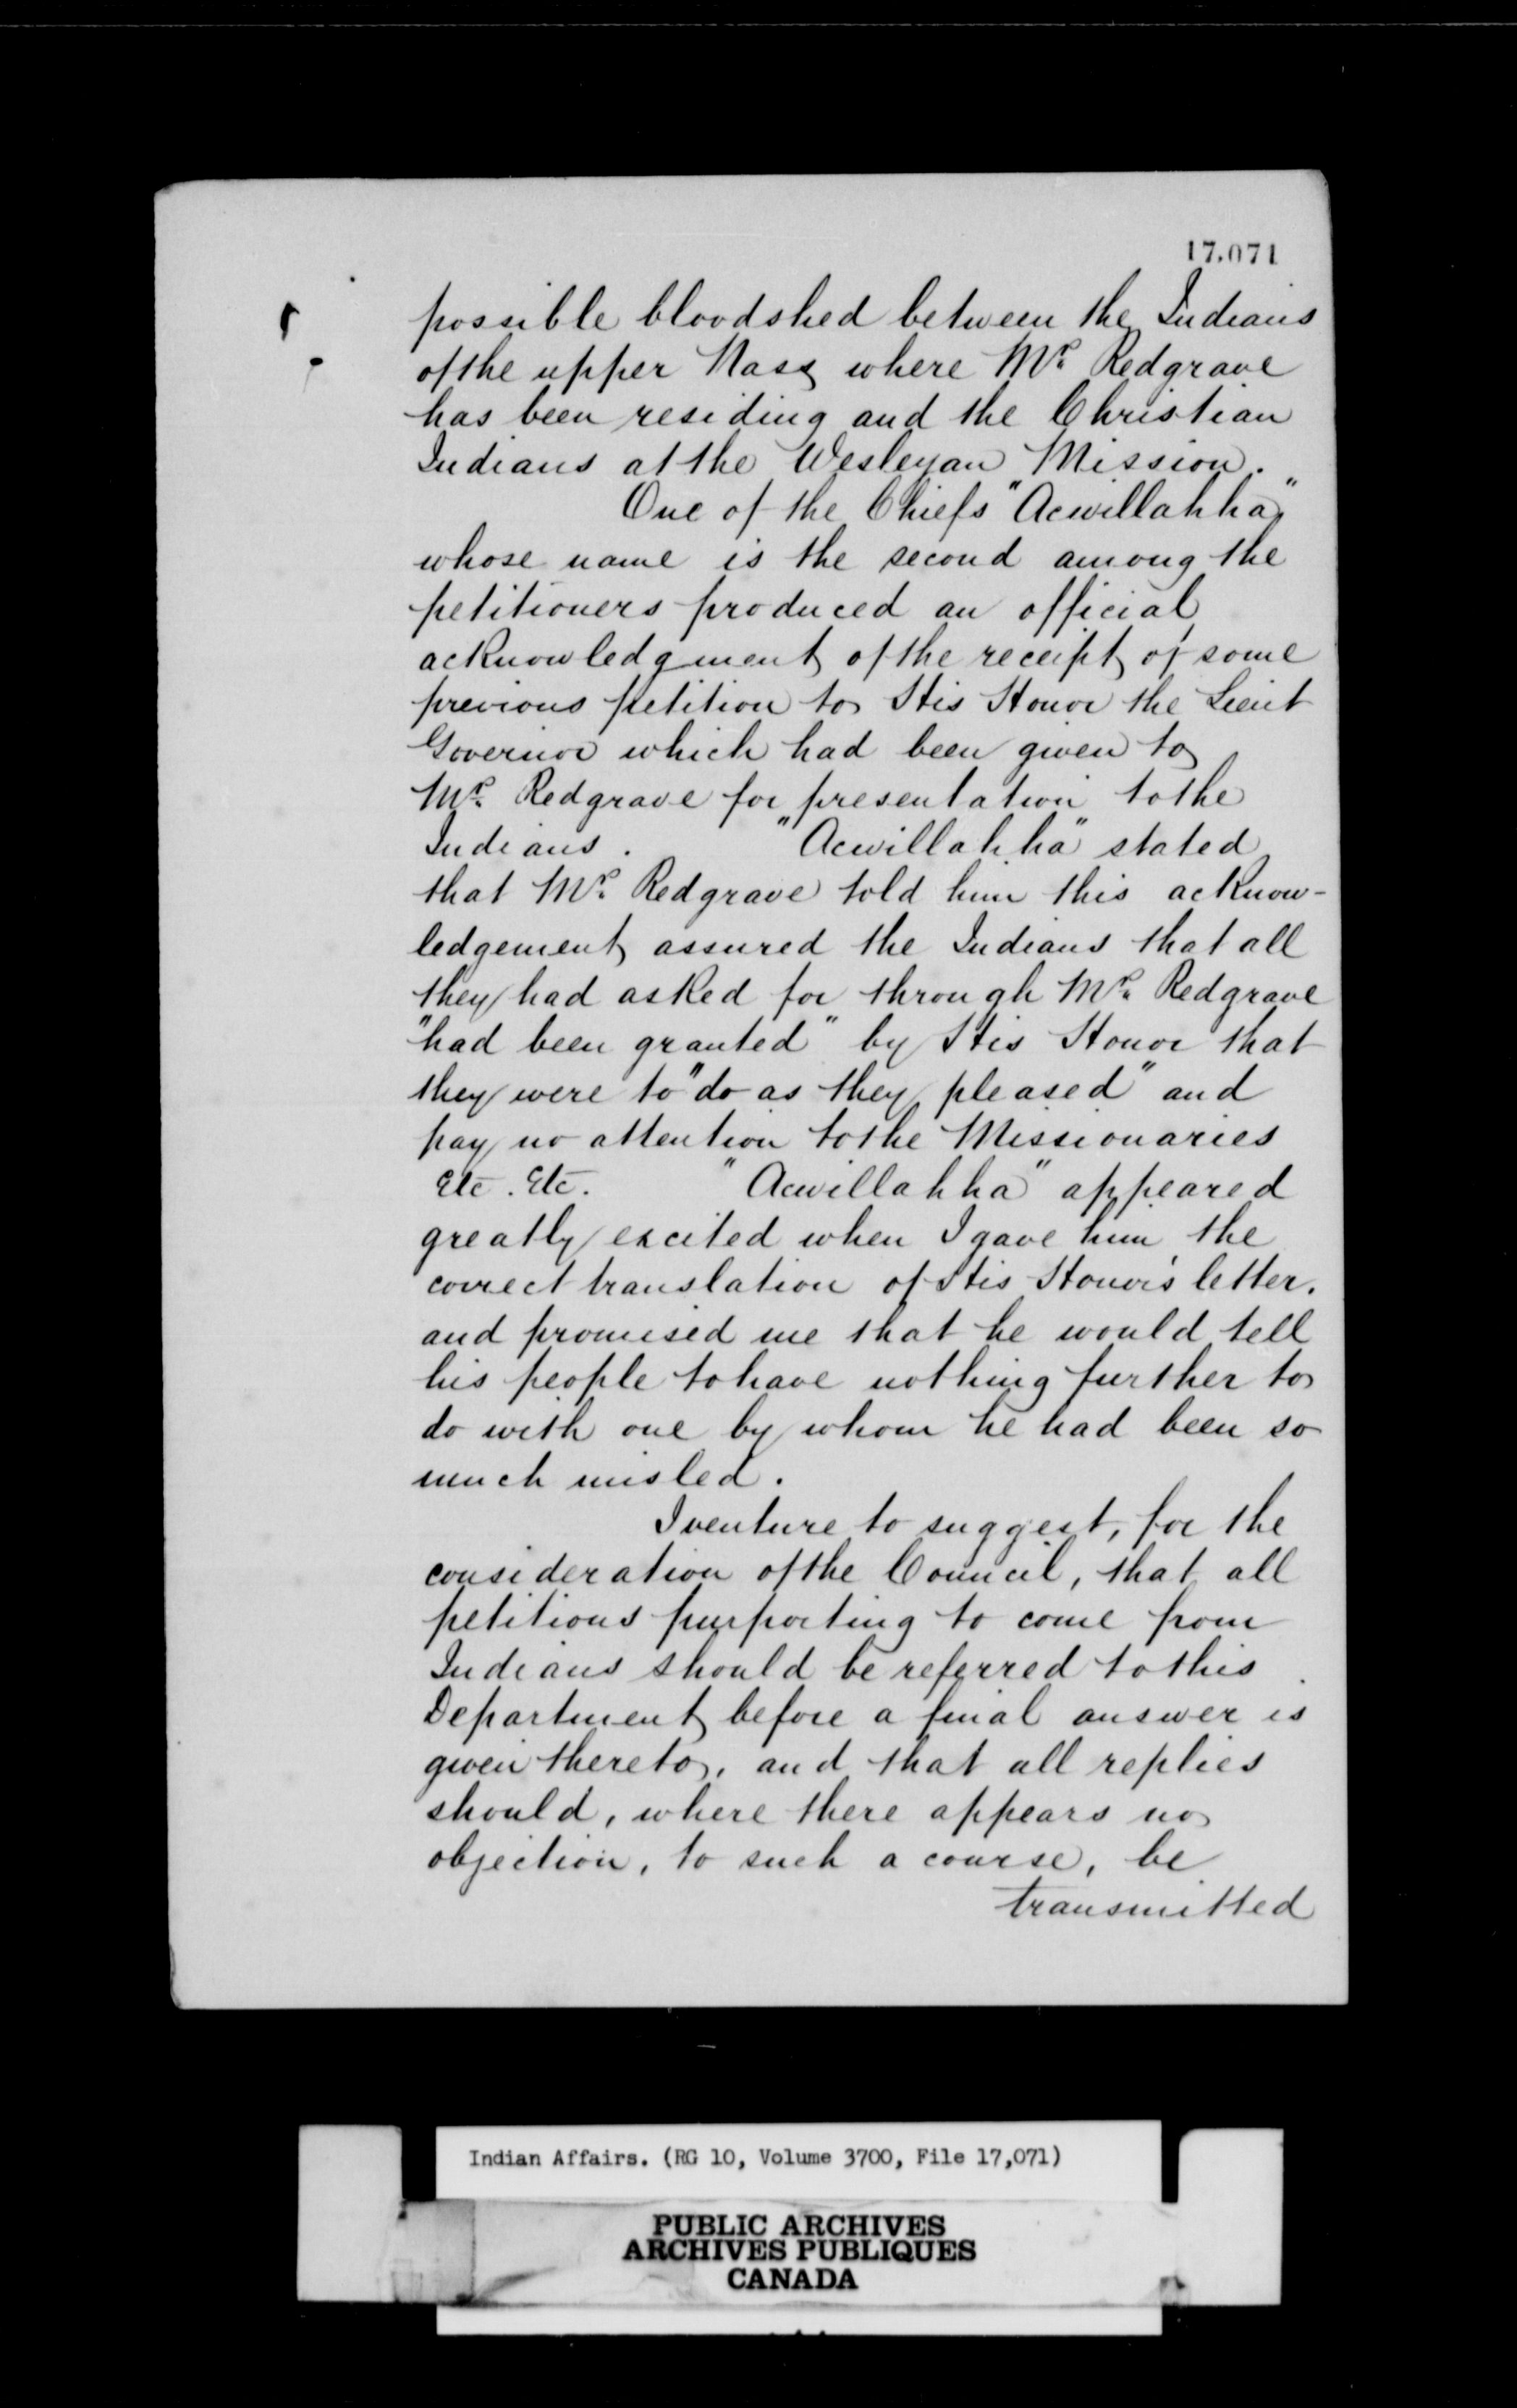 17.071
possible bloodshed between the Indians
of the upper Nass where Mr. Redgrave
has been residing and the Christian
Indians at the Wesleyan Mission.
One of the Chiefs "Acwillahha,"
whose name is the second among the
petitioners produced an official
acknowledgment of the receipt of some
previous petition to His Honor the Lieut
Governor which had been given to
Mr. Redgrave for presentation to the
Indians. "Acwillahha" stated
that Mr. Redgrave told him this acknow-
ledgement assured the Indians that all
they had asked for through Mr. Redgrave
"had been granted" by His Honor that
they were to "do as they pleased" and
pay no attention to the Missionaries
Etc. Etc. "Acwillahha" appeared
greatly excited when I gave him the
correct translation of His Honor's letter.
and promised me that he would tell
his people to have nothing further to
do with one by whom he had been so
much misled.
I venture to suggest, for the
consideration of the Council, that all
petitions purporting to come from
Indians should be referred to this
Department before a final answer is
given thereto, and that all replies
should, where there appears no
objection, to such a course, be
transmitted
Indian Affairs. (RG 10, Volume 3700, File 17,071)
PUBLIC ARCHIVES
ARCHIVES PUBLIQUES
CANADA